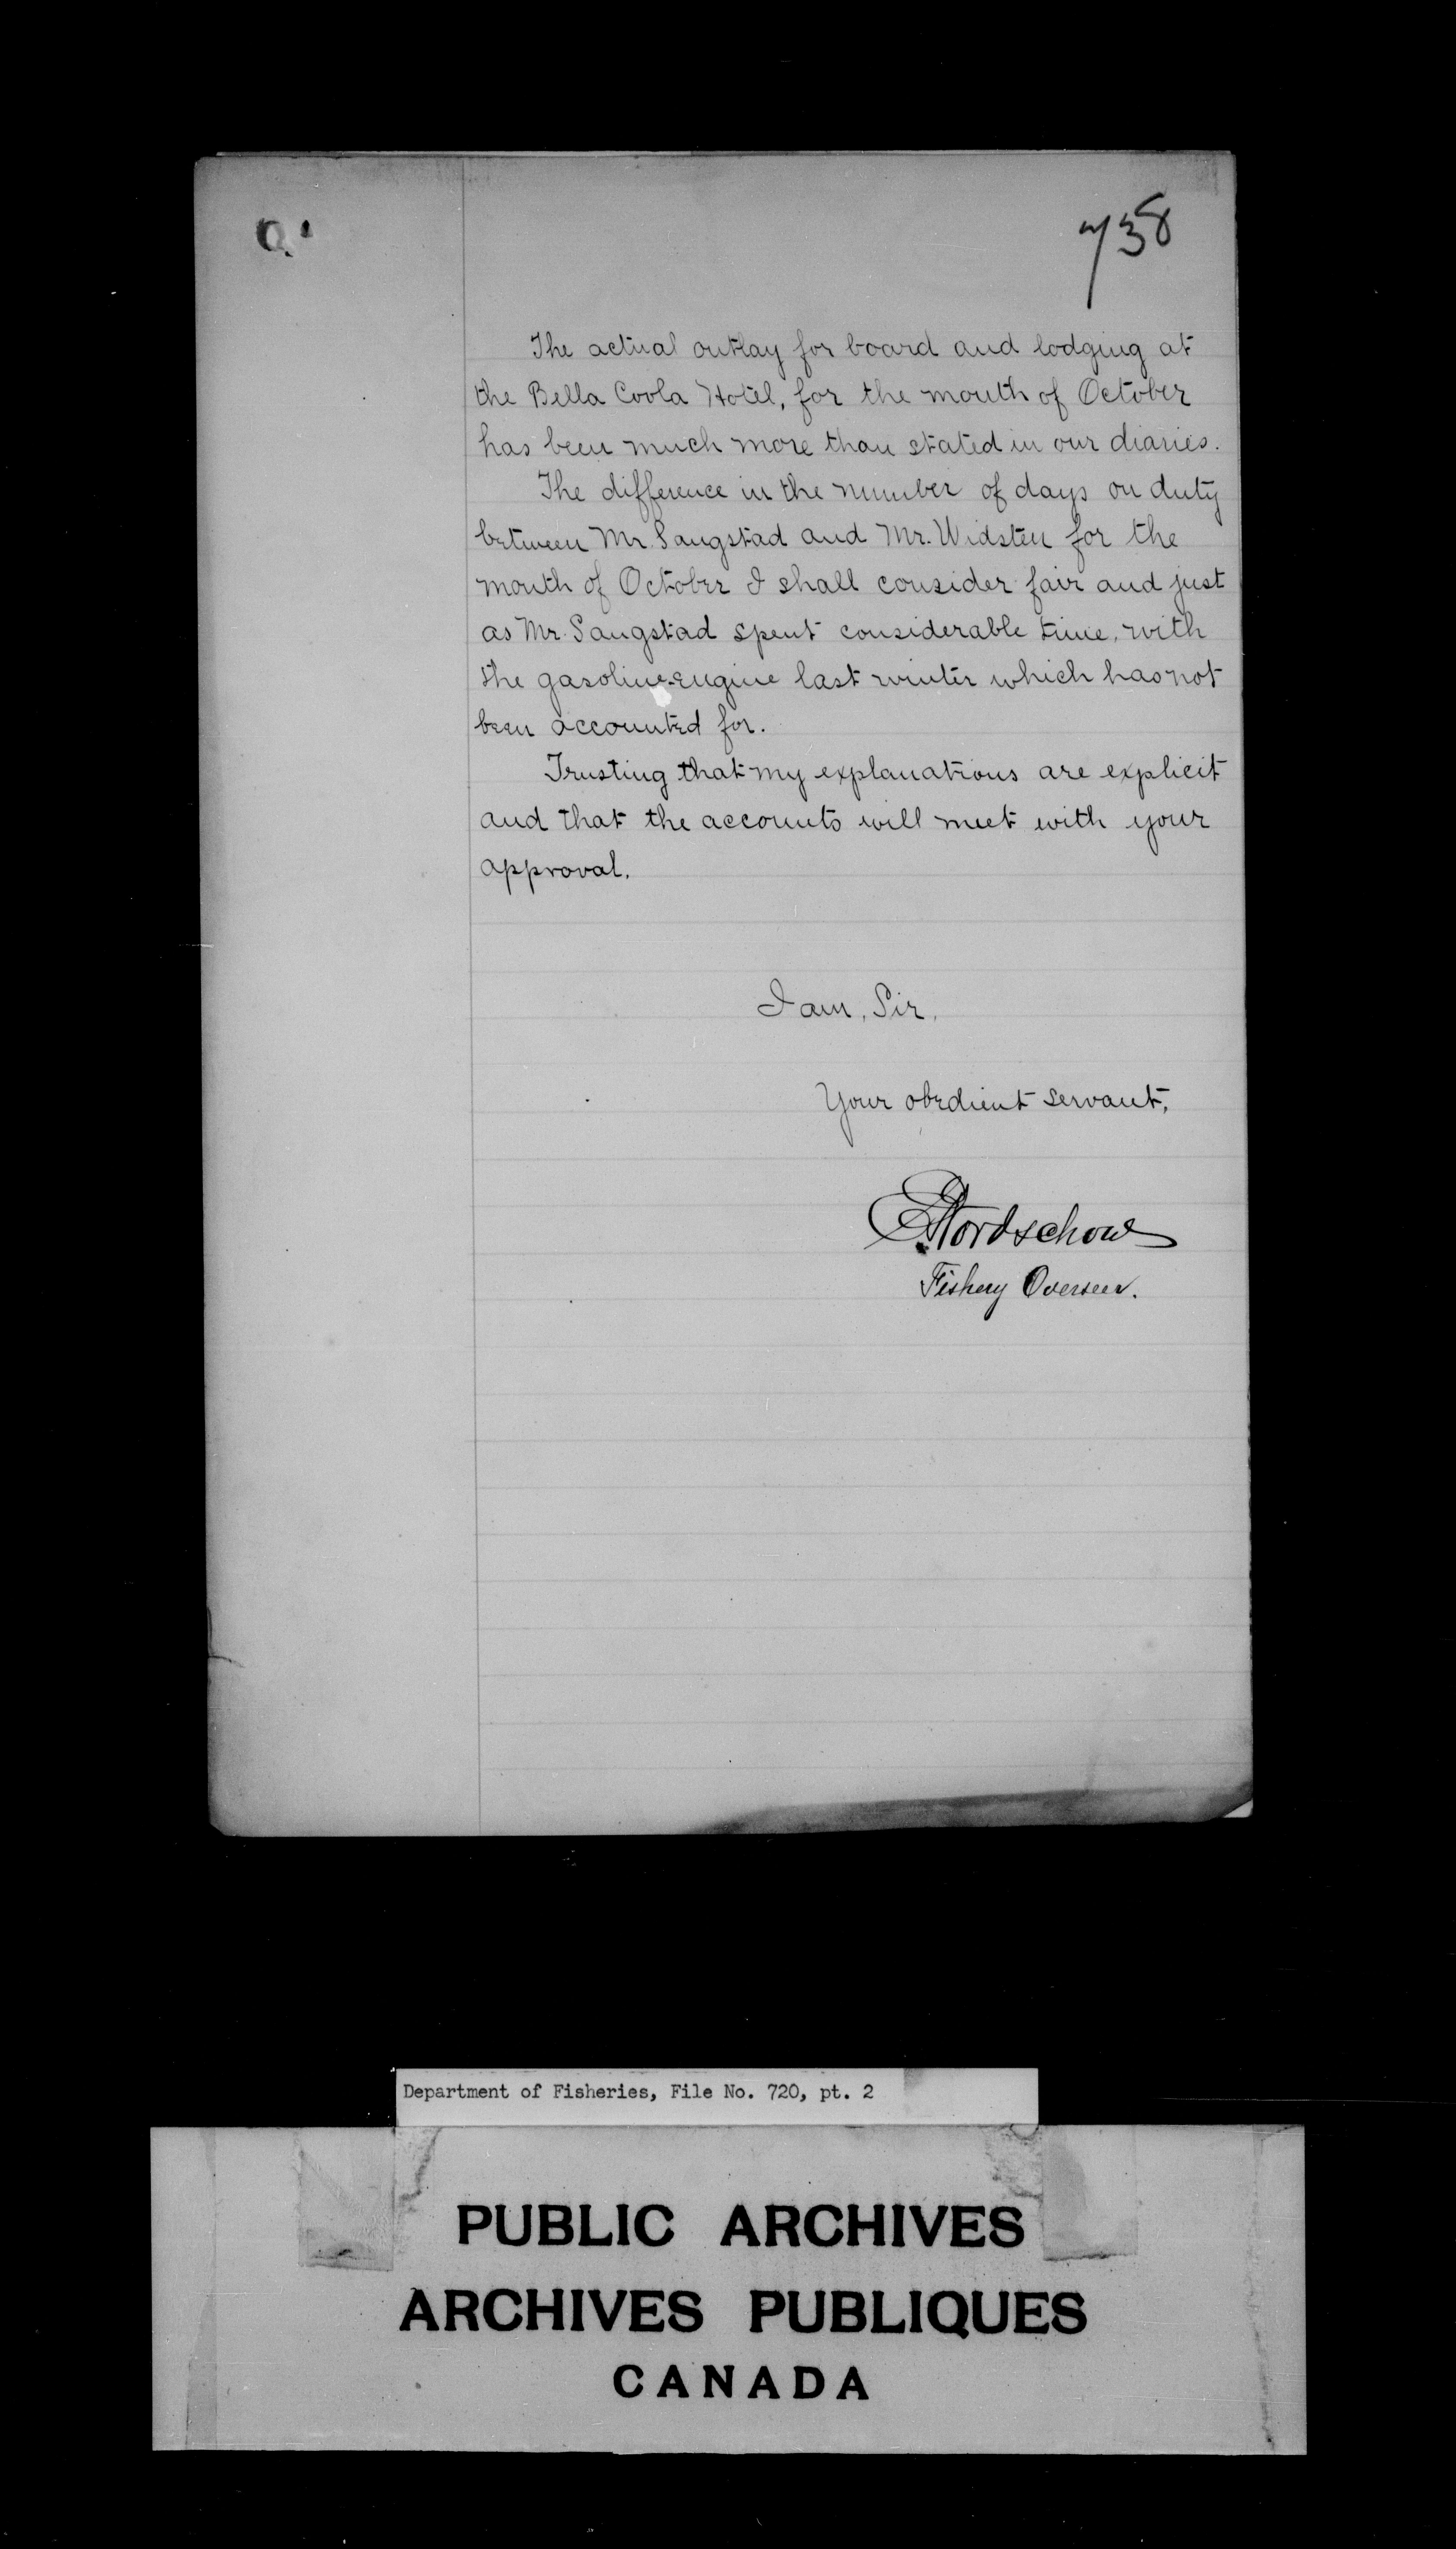 738
The actual outlay for board and lodging at
the Bella Coola Hotel, for the month of October
has been much more than stated in our diaries.
The difference in the number of days on duty
between Mr. Saugstad and Mr. Widsten for the
month of October I shall consider fair and just
as Mr. Saugstad spent considerable time, with
the gasoline-engine last winter which has not
been accounted for.
Trusting that my explanations are explicit
and that the accounts will meet with your
approval.
I am, Sir,
Your obedient servant,
Nordschow
Fishery Overseer.
Department of Fisheries, File No. 720, pt. 2
PUBLIC ARCHIVES
ARCHIVES PUBLIQUES
CANADA